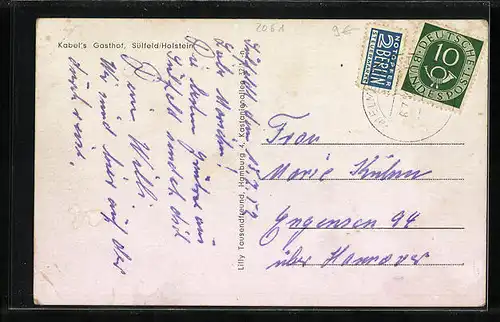 2061
9€
Kabel's Gasthof, Sülfeld/Holstein
Sülfeld, den
Liebe
Die besten Grüße aus
Sülfeld sendet dir
Dein Willi
Wir sind hier auf der
durchreise
Lilly Tausendfreund, Hamburg 4, Kastanienallee
NOTOPFER
2 BERLIN
STEUERMARKE
DEUTSCHE BUNDESPOST
10
Frau
Marie Kühn
Engensen 94
über Hannover